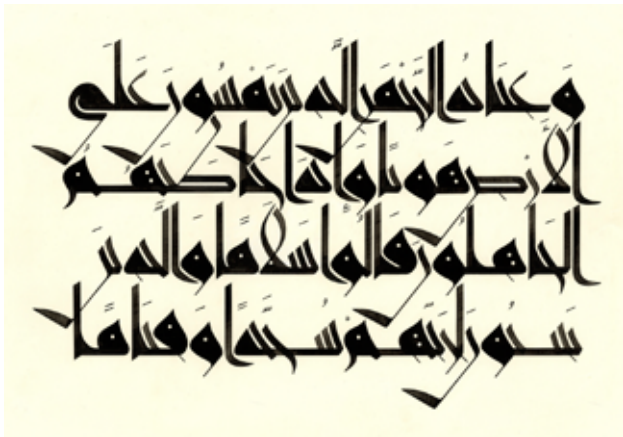 وَعِبَادُ الرَّحْمَنِ الَّذِينَ يَمْشُونَ عَلَى
الْأَرْضِ هَوْنًا وَإِذَا خَاطَبَهُمُ
الْجَاهِلُونَ قَالُوا سَلَامًا وَالَّذِينَ
يَبِيتُونَ لِرَبِّهِمْ سُجَّدًا وَقِيَامًا